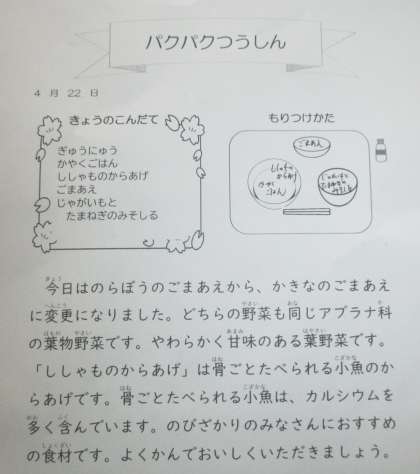 パクパクつうしん
4 月 22 日
きょうのこんだて
ぎゅうにゅう
かやくごはん
ししゃものからあげ
ごまあえ
じゃがいもと
たまねぎのみそしる
もりつけかた
ごまあえ
ししゃもの
からあげ
かやく
ごはん
じゃがいもと
たまねぎの
みそしる
今日はのらぼうのごまあえから、かきなのごまあえ
に変更になりました。どちらの野菜も同じアブラナ科
の葉物野菜です。やわらかく甘味のある葉野菜です。
「ししゃものからあげ」は骨ごとたべられる小魚のか
らあげです。骨ごとたべられる小魚は、カルシウムを
多く含んでいます。のびざかりのみなさんにおすすめ
の食材です。よくかんでおいしくいただきましょう。